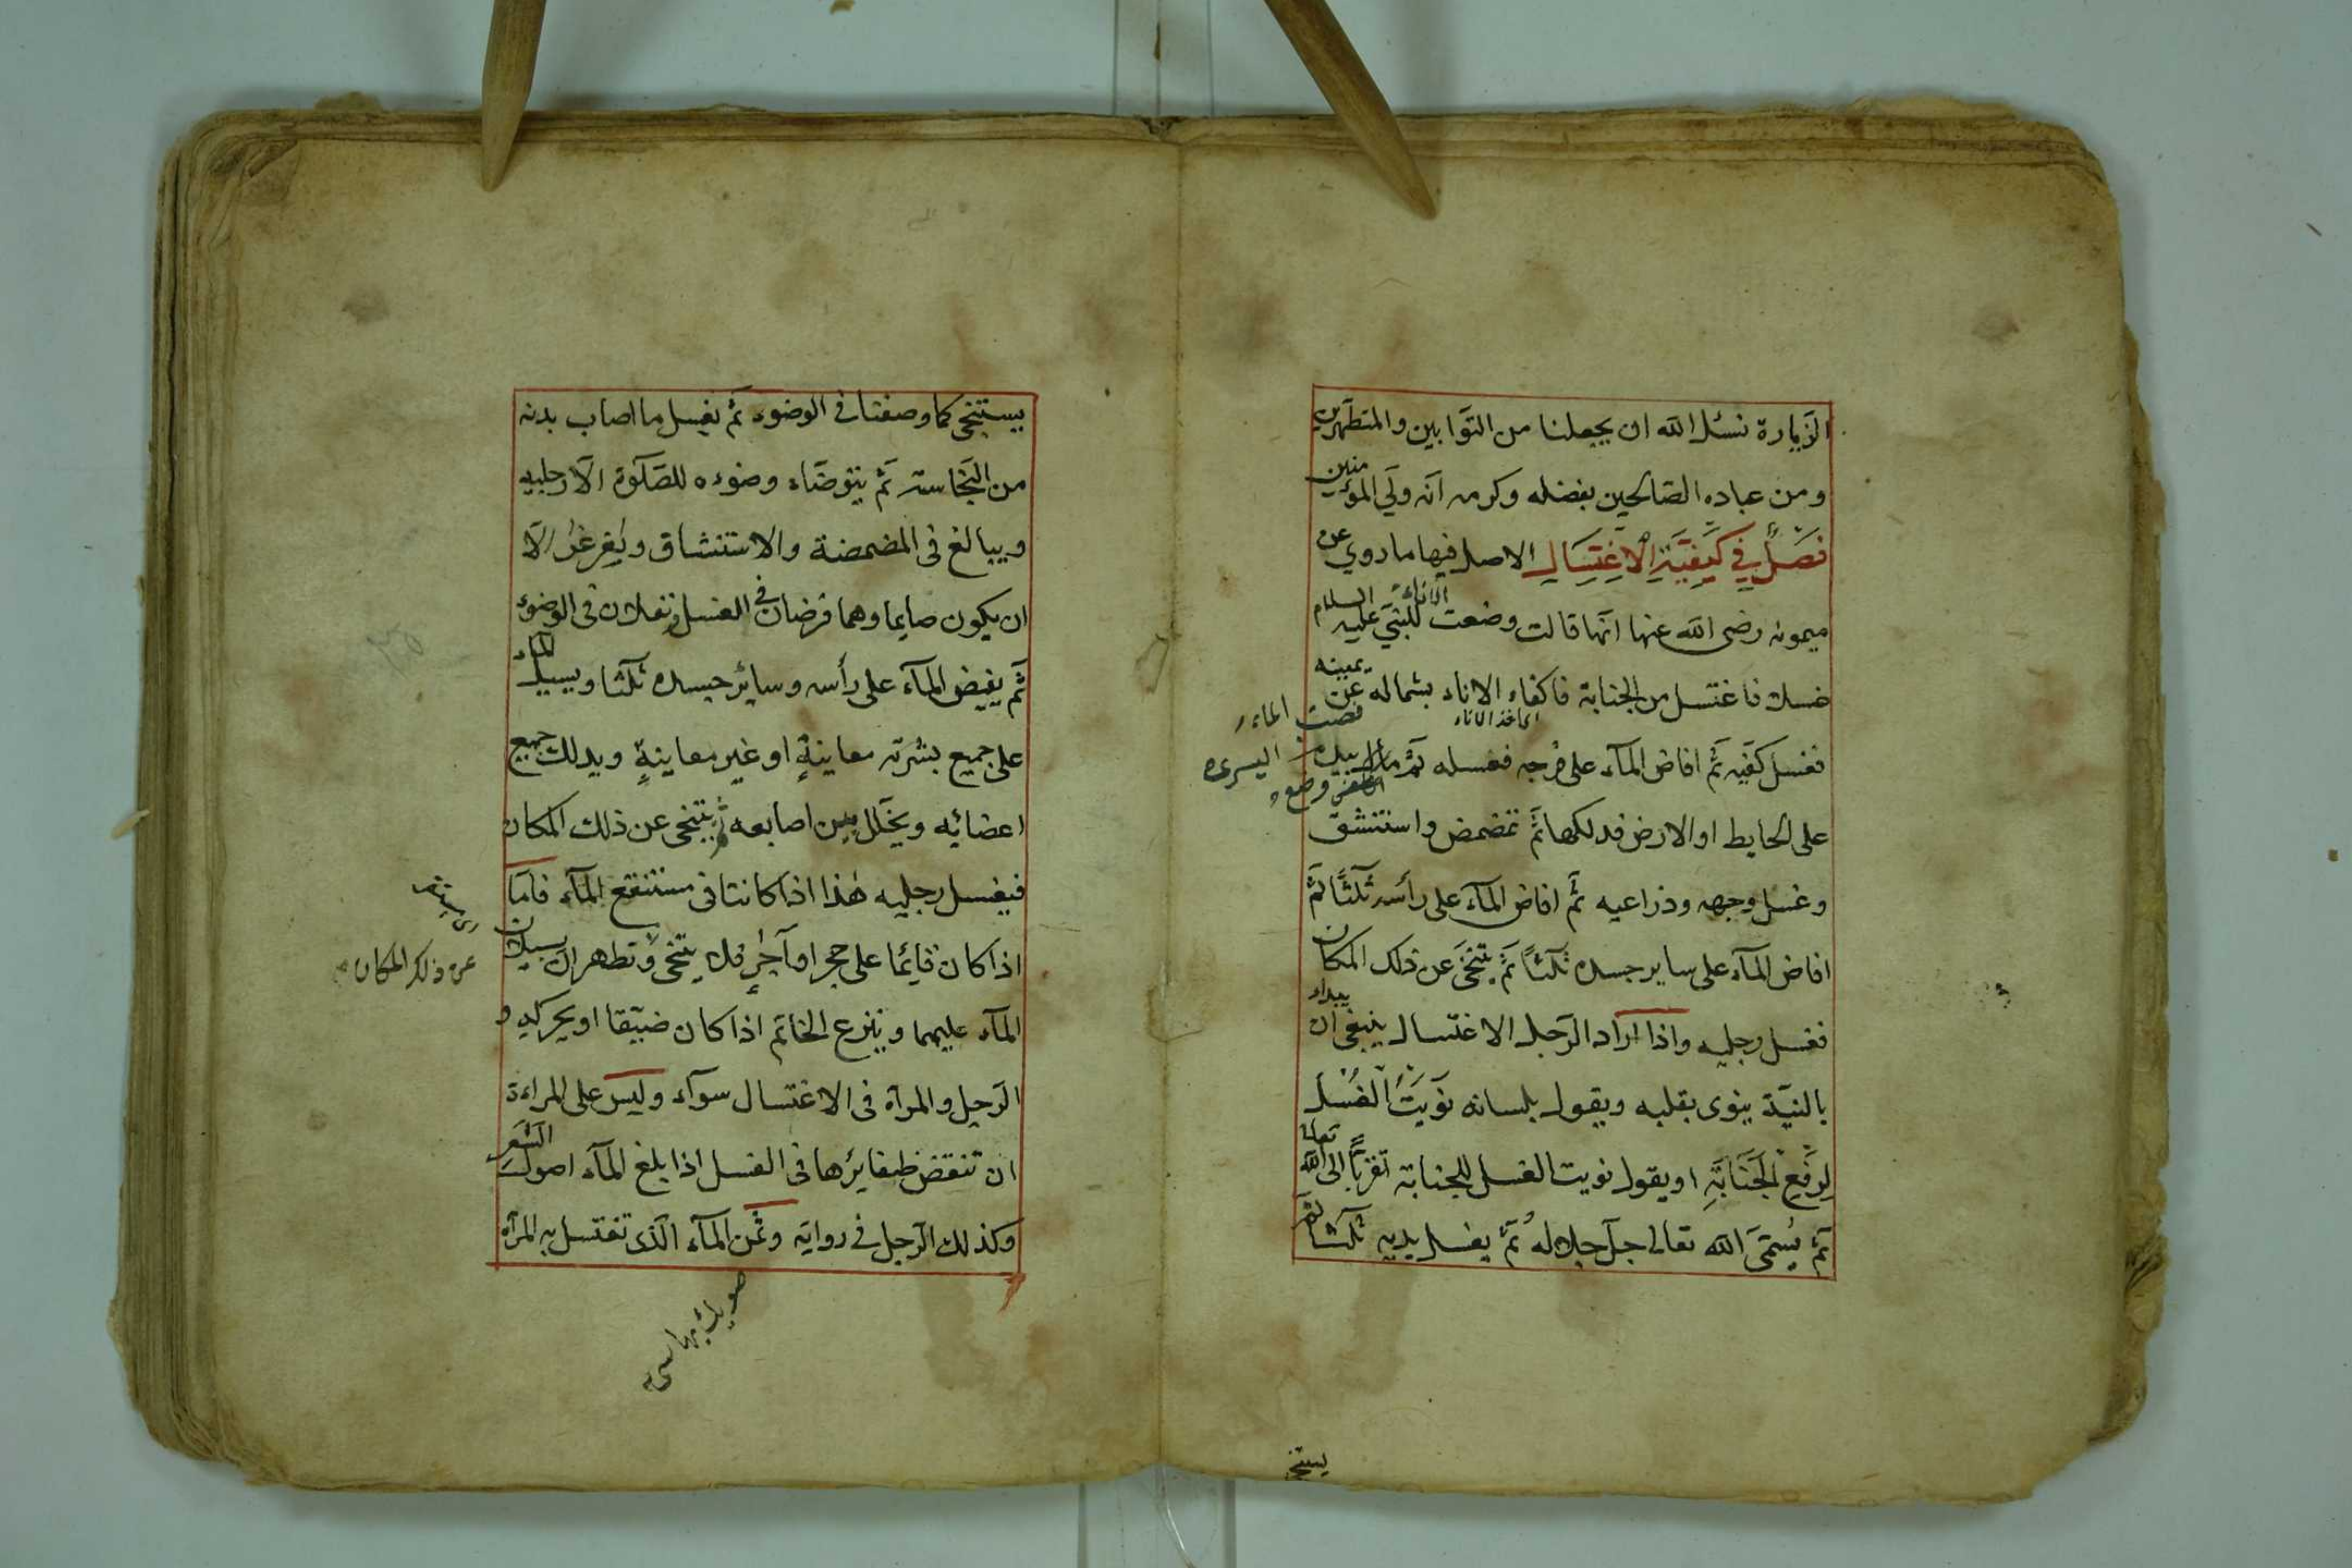 الزيارة نسئل الله ان يجعلنا من التوّابين والمتطهّرين
ومن عباده الصّالحين بفضله وكرمه انّه وليّ المؤمنين
فَصْلٌ فِي كَيْفِيَّةِ الْاِغْتِسَالِ الاصل فيها ما روي عن
ميمونه رضى الله عنها انّها قالت وضعت للنبيّ عليه السلام
الاناء
غسلا فاغتسل من الجنابة فاكفاء الاناء بشماله عن يمينه
اى اخذ الاناء
فصب الماء
فغسل كفّيه ثمّ افاض المآء على فرجه فغسله ثمّ مال بيده
اليسرى
على الحايط او الارض فدلكها ثمّ تمضمض واستنشق
وغسل وجهه وذراعيه ثمّ افاض المآء على رأسه ثلثًا ثمّ
افاض المآء على ساير جسده ثلثاً ثمّ يتنحّى عن ذلك المكان
فغسل رجليه واذا اراد الرّجل الاغتسال ينبغى ان يبداء
بالنيّة ينوى بقلبه ويقول بلسانه نَوَيْتُ الْغُسْلَ
لِرَفْعِ الْجَنَابَةِ او يقول نويت الغسل للجنابة تقرّباً الى الله تعالى
ثمّ يُسَمّىَ الله تعالى جلّ جلاله ثمّ يغسل يديه ثلثا ثمّ
يستنجى
يستنجى كما وصفنا فى الوضوء ثمّ يغسل ما اصاب بدنه
من النّجاسة ثمّ يتوضّاء وضوءه للصّلوة الّا رجليه
ويبالغ فى المضمضة والاستنشاق ويُغرغرُ الّا
ان يكون صايما وهما فرضان فى الغسل ونفلان فى الوضوء
ثمّ يفيض المآء على رأسه وسائر جسده ثلثا ويسيل الماء
على جميع بشرته معاينةٍ او غير معاينةٍ ويدلك جميع
اعضائه ويخلّل بين اصابعه ثمّ يتنحّى عن ذلك المكان
فيغسل رجليه هٰذا اذا كانتا فى مستنقع المآء فامّا
اذا كان قائما على حجر او آجرٍ فلا يتنحّى وتطهران بسيلان
عن ذلك المكان
المآء عليهما وينزع الخاتم اذا كان ضيّقا او يحركه و
الرّجل والمرآة فى الاغتسال سوآء وليس على المراءة
ان تنقض ظفايرها فى الغسل اذا بلغ المآء اصول الشّعر
وكذلك الرّجل فى رواية وثمن المآء الّذى تغتسل به المرآة
صويك بهاسى